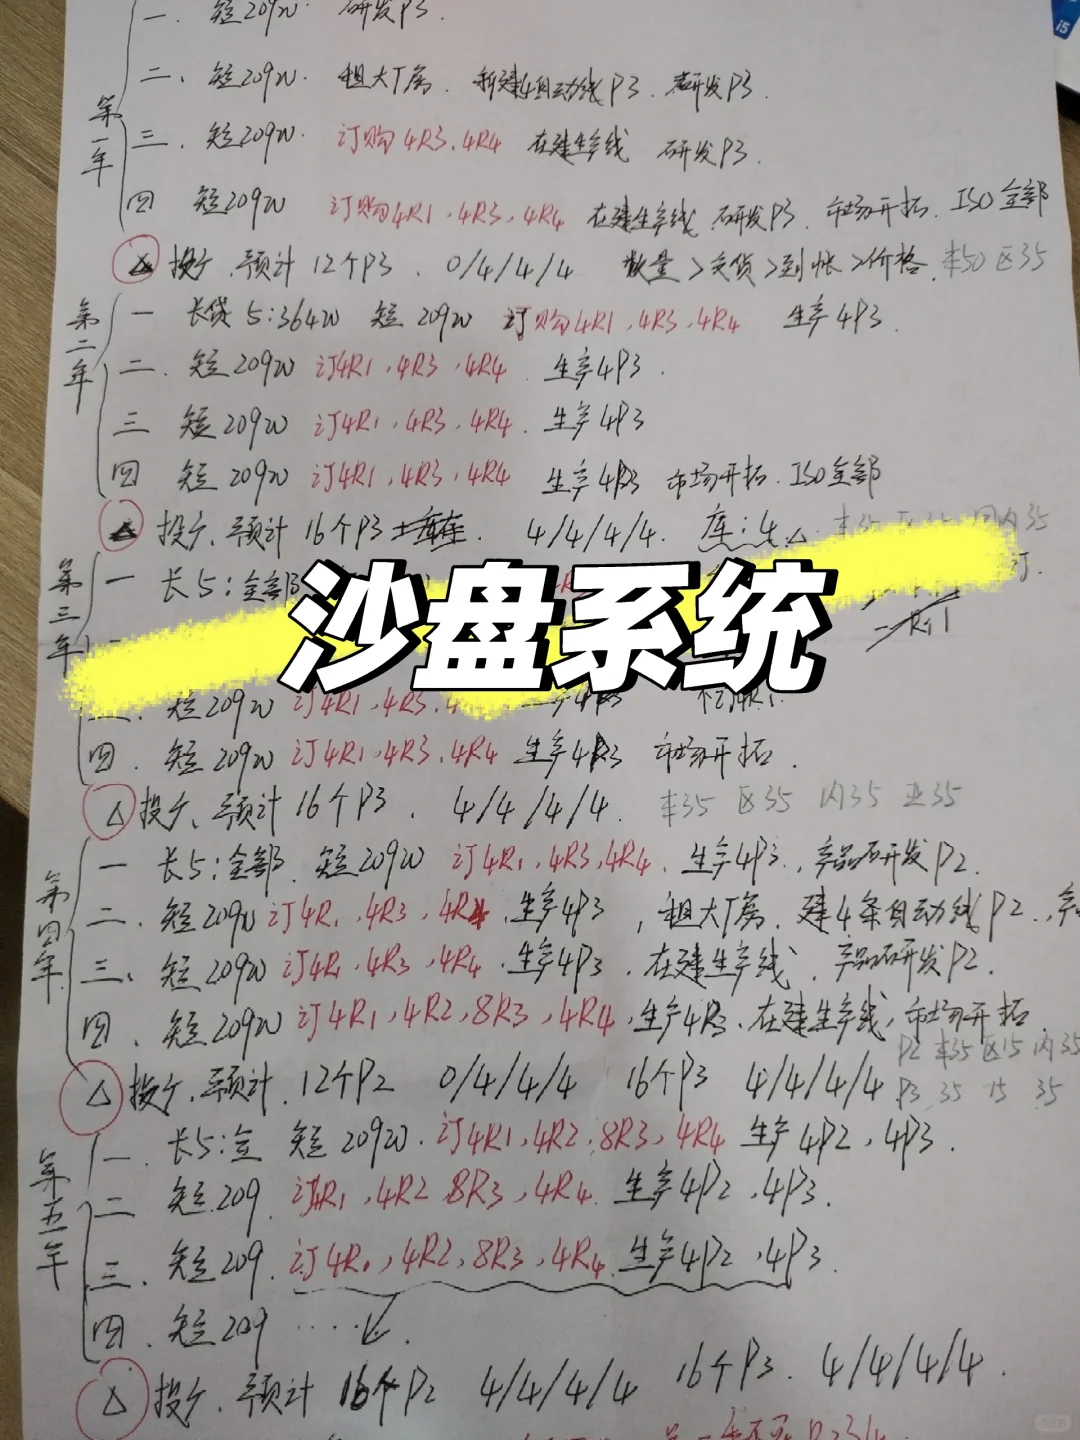 一. 短209W 研发P3.
二、短209W. 租大厂房. 新建4自动线P3. 研发P3.
第一年
三. 短209W. 订购4R3.4R4 在建生产线 研发P3.
四 短209W 订购4R1,4R3,4R4 在建生产线 研发P3. 市场开拓. ISO全部
投广、预计12个P3. 0/4/4/4 数量>交货>到帐>价格. 本50 区35
第二年
一 长贷5:364W 短209W 订购4R1,4R3,4R4 生产4P3.
二. 短209W 订4R1,4R3,4R4 生产4P3.
三 短209W 订4R1,4R3,4R4. 生产4P3
四 短209W 订4R1,4R3,4R4 生产4P3 市场开拓. ISO全部
△ 投广、预计16个P3 4/4/4/4. 库:4
第三年
一 长5:全部
沙盘系统
短209W 订4R1,4R3.
四. 短209W 订4R1,4R3,4R4 生产4P3 市场开拓.
△ 投广、预计16个P3. 4/4/4/4. 本35 区35 内35 亚35
第四年
一 长5:全部. 短209W 订4R1,4R3,4R4. 生产4P3., 产品研发P2.
二. 短209W 订4R1,4R3,4R4. 生产4P3, 租大厂房. 建4条自动线P2.,
三、短209W 订4R1,4R3,4R4. 生产4P3. 在建生产线, 产品研发P2.
四、短209W 订4R1,4R2,8R3,4R4,生产4P3、在建生产线,市场开拓.
P2 本35 区15 内35
△ 投广、预计.12个P2 0/4/4/4 16个P3 4/4/4/4 P3 35 15 35
第五年
一. 长5:全 短209W. 订4R1,4R2,8R3,4R4 生产4P2,4P3.
二 短209. 订4R1,4R2 8R3,4R4. 生产4P2,4P3.
三. 短209. 订4R1,4R2,8R3,4R4. 生产4P2,4P3
四. 短209 ·····
△ 投广、预计16个P2 4/4/4/4 16个P3. 4/4/4/4.